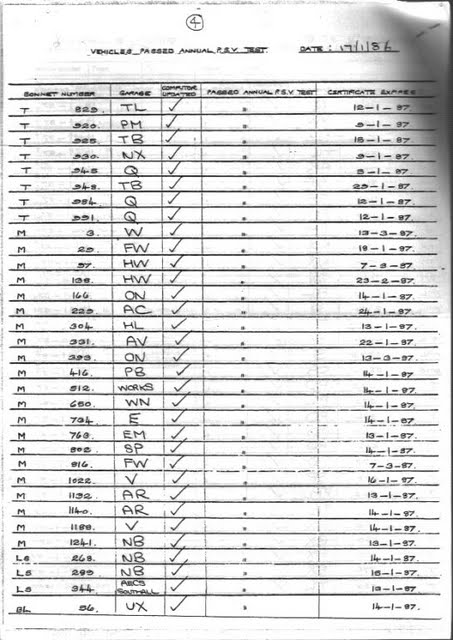 4
VEHICLES PASSED ANNUAL P.S.V TEST. DATE: 17/1/86
BONNET NUMBER GARAGE COMPUTOR UPDATED PASSED ANNUAL P.S.V TEST CERTIFICATE EXPIRES
T 829. TL ✓ " 12-1-87.
T 920. PM ✓ " 9-1-87.
T 925. TB ✓ " 15-1-87.
T 930. NX ✓ " 9-1-87.
T 945. Q ✓ " 5-1-87.
T 948. TB ✓ " 29-1-87.
T 984. Q ✓ " 12-1-87.
T 991. Q ✓ " 12-1-87.
M 3. W ✓ " 13-3-87.
M 29. FW ✓ " 19-1-87.
M 57. HW ✓ " 7-3-87.
M 138. HW ✓ " 23-2-87.
M 166. ON ✓ " 14-1-87.
M 229. AC ✓ " 24-1-87.
M 304. HL ✓ " 13-1-87.
M 331. AV ✓ " 22-1-87.
M 393. ON ✓ " 13-3-87.
M 416. PB ✓ " 14-1-87.
M 512. WORKS ✓ " 14-1-87.
M 650. WN ✓ " 14-1-87.
M 734. E ✓ " 14-1-87.
M 763. EM ✓ " 13-1-87.
M 802. SP ✓ " 14-1-87.
M 816. FW ✓ " 7-3-87.
M 1022. V ✓ " 16-1-87.
M 1132. AR ✓ " 13-1-87.
M 1140. AR ✓ " 14-1-87.
M 1188. V ✓ " 14-1-87.
M 1241. NB ✓ " 13-1-87.
LS 263. NB ✓ " 14-1-87.
LS 299. NB ✓ " 15-1-87.
LS 344. AECS SOUTHALL ✓ " 13-1-87.
BL 56. UX ✓ " 14-1-87.